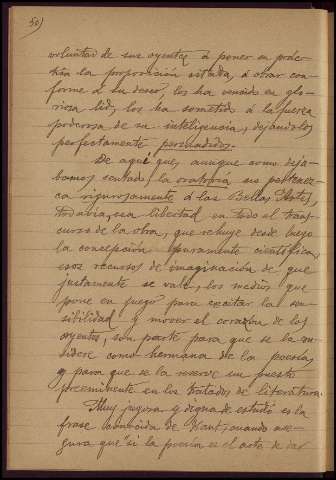 50)
voluntad de sus oyentes á poner en prác-
tica la proposición sitada, á obrar con-
forme á su deseo, los ha vencido en glo-
riosa lid, los ha sometido á la fuerza
poderosa de su inteligencia, dejándolos
perfectamente persuadidos.
De aquí que, aunque como deja-
bamos sentado, la oratoria no pertenez-
ca rigurosamente á las Bellas Artes,
todavia, esa libertad en todo el trans-
curso de la obra, que rehuye desde luego
la concepción puramente cientifica,
esos recursos de imaginación de que
justamente se vale, los medios que
pone en juego para excitar la sen-
sibilidad y mover el corazón de los
oyentes, son parte para que se la con-
sidere como hermana de la poesia,
y para que se la reserve un puesto
preeminente en los tratados de literatura.
Muy jugosa y digna de estudio es la
frase conocida de Kant, cuando ase-
gura que "si la poesia es el arte de dar